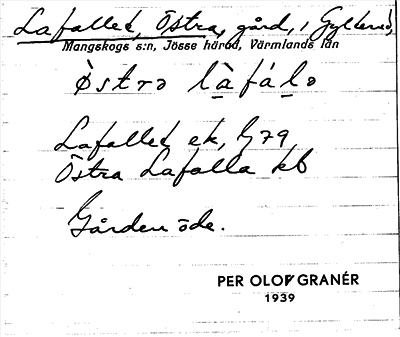 Lafallet, Östra, gård, i Gyllerud,
Mangskogs s:n, Jösse härad, Värmlands län
òstrə là̠fál̠ə
Lafallet ek, G 79,
Östra Lafalla kb
Gården öde.
PER OLOF GRANÉR
1939